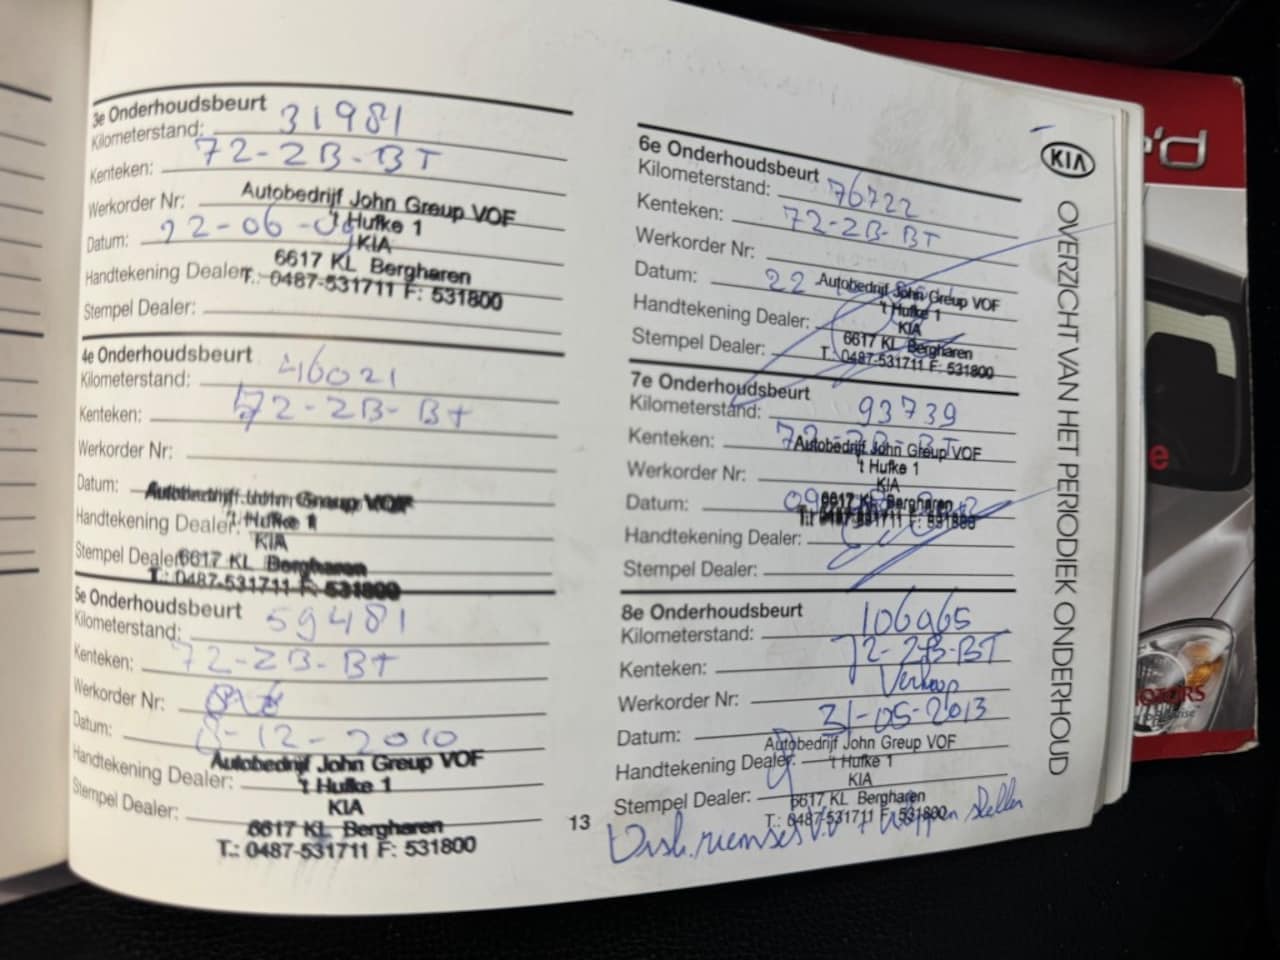 3e Onderhoudsbeurt
Kilometerstand: 31981
Kenteken: 72-2B-BT
Werkorder Nr:
Autobedrijf John Greup VOF
't Hufke 1
Datum: 22-06-09
KIA
6617 KL Bergharen
Handtekening Dealer:
T.: 0487-531711 F: 531800
Stempel Dealer:
4e Onderhoudsbeurt
Kilometerstand: 46021
Kenteken: 72-2B-BT
Werkorder Nr:
Datum:
Autobedrijf John Greup VOF
Handtekening Dealer:
't Hufke 1
KIA
Stempel Dealer:
6617 KL Bergharen
T.: 0487-531711 F: 531800
5e Onderhoudsbeurt
Kilometerstand: 59481
Kenteken: 72-2B-BT
Werkorder Nr:
Datum: 8-12-2010
Autobedrijf John Greup VOF
Handtekening Dealer:
't Hufke 1
KIA
Stempel Dealer:
6617 KL Bergharen
T.: 0487-531711 F: 531800
13
6e Onderhoudsbeurt
Kilometerstand: 76722
Kenteken: 72-2B-BT
Werkorder Nr:
Datum: 22
Autobedrijf John Greup VOF
't Hufke 1
Handtekening Dealer:
KIA
6617 KL Bergharen
Stempel Dealer:
T.: 0487-531711 F: 531800
7e Onderhoudsbeurt
Kilometerstand: 93739
Kenteken: 72-2B-BT
Autobedrijf John Greup VOF
't Hufke 1
Werkorder Nr:
KIA
Datum: 09
6617 KL Bergharen
T.: 0487-531711 F: 531800
Handtekening Dealer:
Stempel Dealer:
8e Onderhoudsbeurt
Kilometerstand: 106965
Kenteken: 72-2B-BT
Werkorder Nr: Verkoop
Datum: 31-05-2013
Autobedrijf John Greup VOF
Handtekening Dealer:
't Hufke 1
KIA
Stempel Dealer:
6617 KL Bergharen
T.: 0487-531711 F: 531800
Distr. riemset + kleppen stellen
KIA
OVERZICHT VAN HET PERIODIEK ONDERHOUD
'd
e
MOTORS